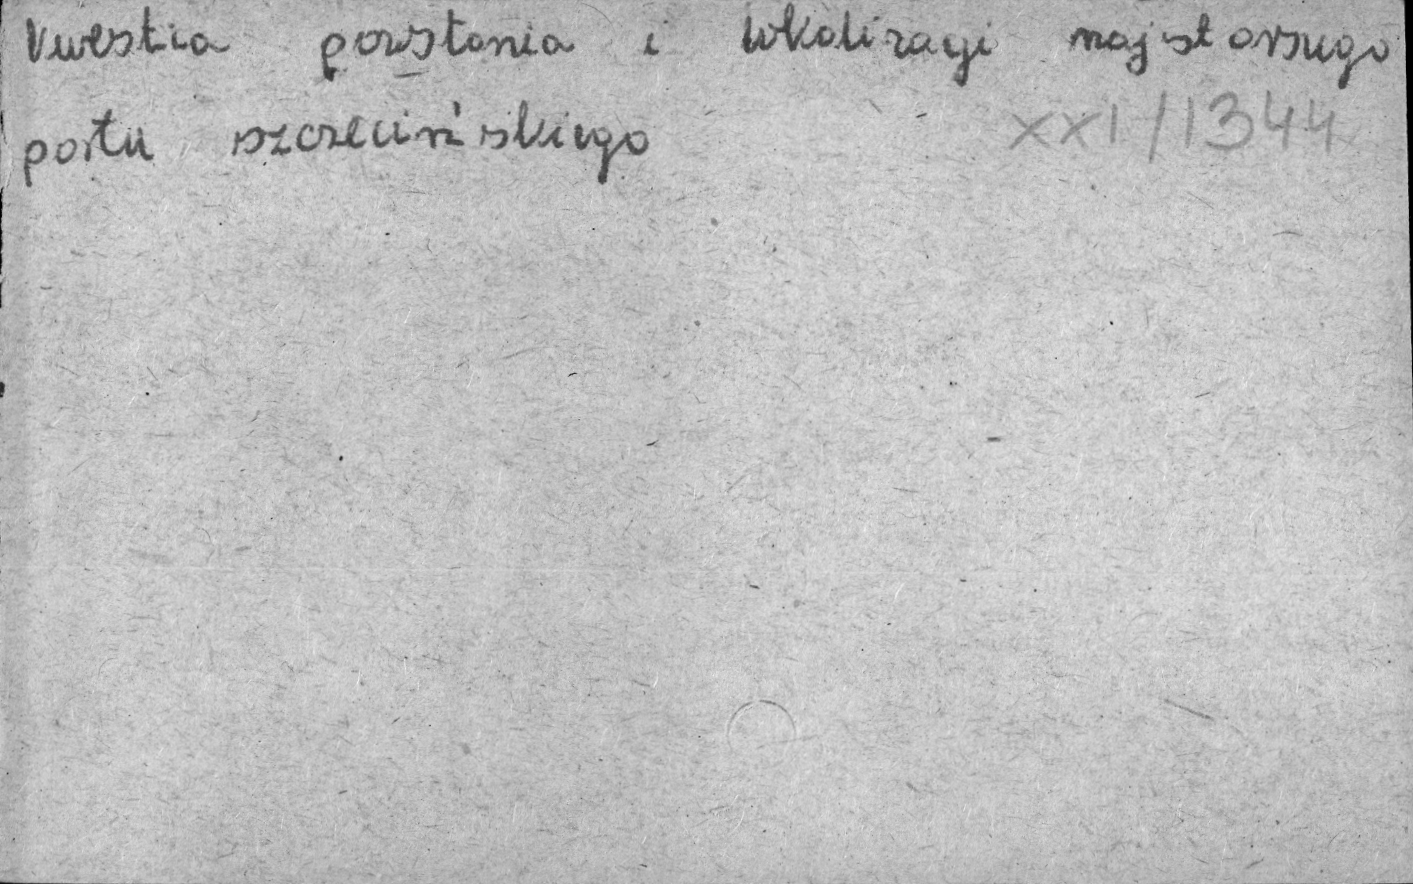 Kwestia powstania i lokalizacji najstarszego
portu szczecińskiego XXI/1344